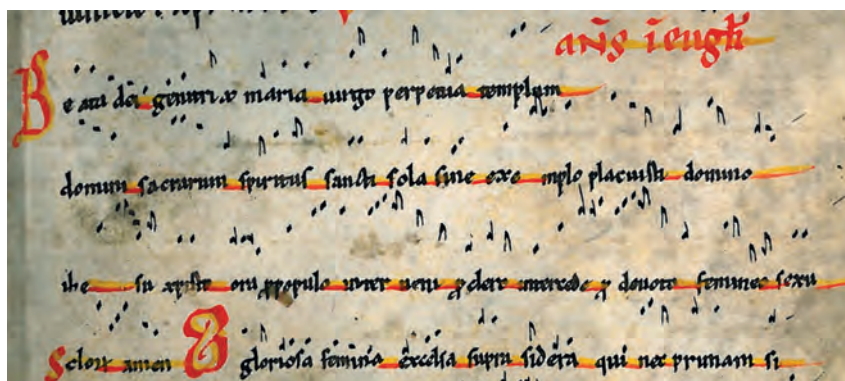 añs i eugł
Beata dei genitrix maria uirgo perpetua templum
domini sacrarum spiritus sancti sola sine exemplo placuisti domino
ihesu xpisto ora p populo interueni p clero intercede p deuoto femineo sexu
Sclorz amen O gloriosa femina excelsa supra sidera qui nec prunam si